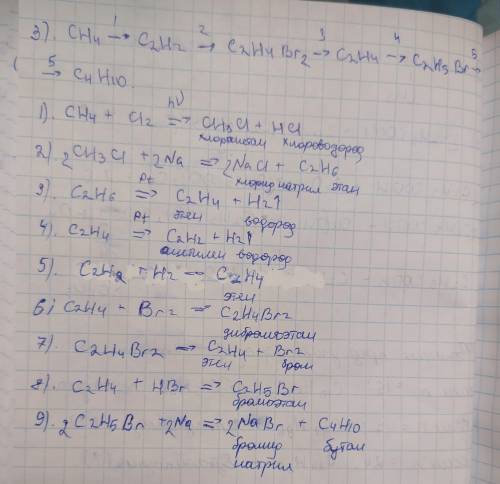 3). CH4 →1 C2H2 →2 C2H4Br2 →3 C2H4 →4 C2H5Br →5
→5 C4H10.
1). CH4 + Cl2 hν => CH3Cl + HCl
хлорметан хлороводород
2). 2CH3Cl + 2Na => 2NaCl + C2H6
хлорид натрия этан
3). C2H6 Pt => C2H4 + H2↑
этен водород
4). C2H4 Pt => C2H2 + H2↑
ацетилен водород
5). C2H2 + H2 => C2H4
этен
6) C2H4 + Br2 => C2H4Br2
дибромэтан
7). C2H4Br2 => C2H4 + Br2
этен бром
8). C2H4 + HBr => C2H5Br
бромэтан
9). 2C2H5Br + 2Na => 2NaBr + C4H10
бромид бутан
натрия